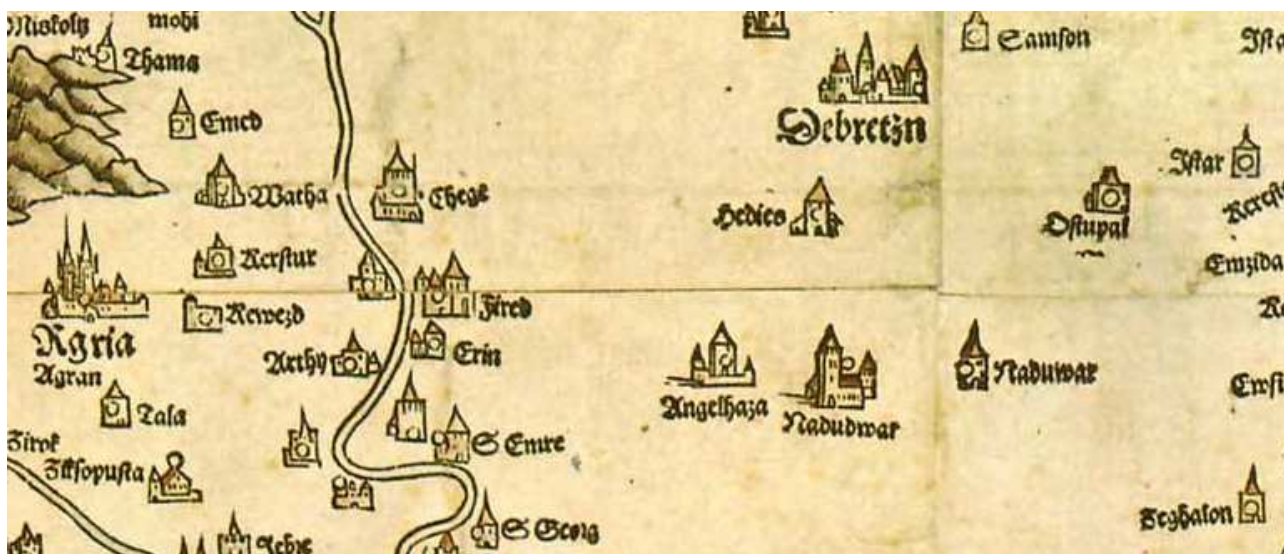 Miskoltz
mohi
Thama
Emed
Watha
Chege
Kerstur
Kewezd
Agria
Agran
Arthy
Fired
Erin
Tala
Zirok
S Emre
S Georg
Debretzn
Hedies
Angelhaza
Nadudwar
Samson
Istar
Ostupak
Emzida
Naduwar
Feghalon